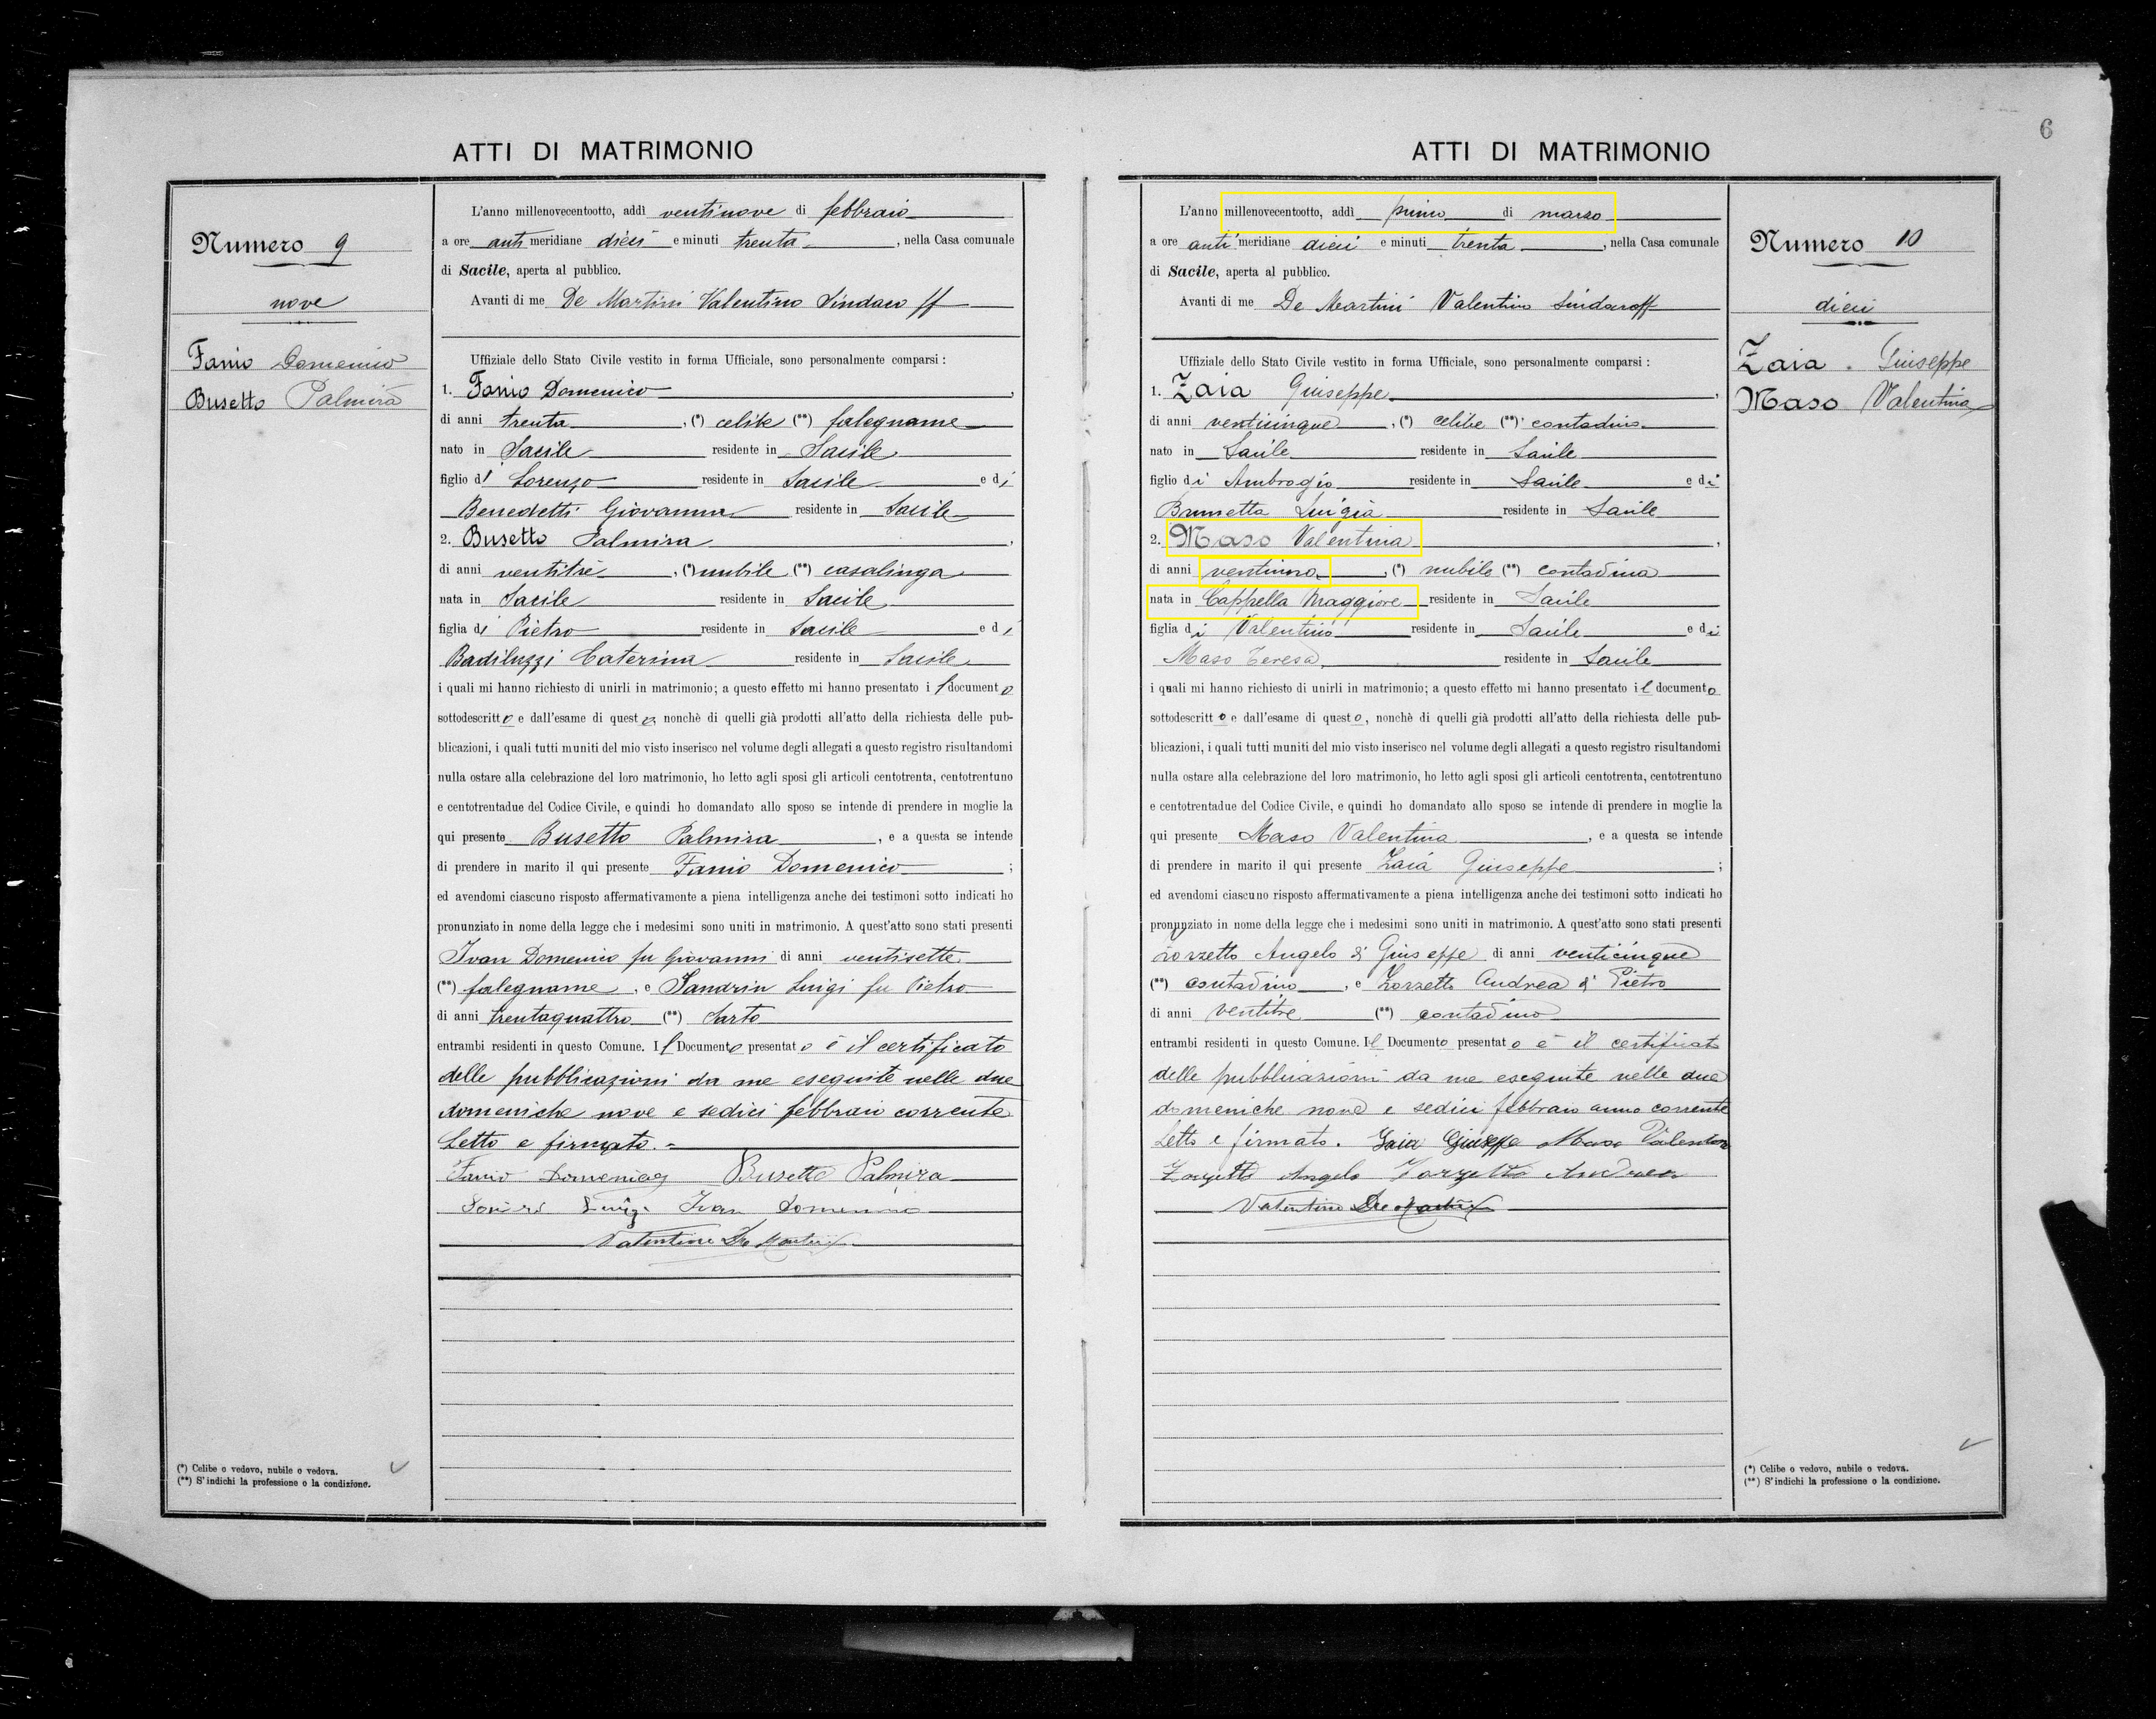 ATTI DI MATRIMONIO
Numero 9
nove
Fanio Domenico
Busetto Palmira
L'anno millenovecentootto, addì ventinove di febbraio
a ore anti meridiane dieci e minuti trenta, nella Casa comunale
di Sacile, aperta al pubblico.
Avanti di me De Martini Valentino Sindaco ff
Uffiziale dello Stato Civile vestito in forma Ufficiale, sono personalmente comparsi:
1. Fanio Domenico,
di anni trenta, (*) celibe (**) falegname
nato in Sacile residente in Sacile
figlio di Lorenzo residente in Sacile e di
Benedetti Giovanna residente in Sacile
2. Busetto Palmira,
di anni ventitrè, (*) nubile (**) casalinga
nata in Sacile residente in Sacile
figlia di Pietro residente in Sacile e di
Badiluzzi Caterina residente in Sacile
i quali mi hanno richiesto di unirli in matrimonio; a questo effetto mi hanno presentato il documento
sottodescritto e dall'esame di questo, nonchè di quelli già prodotti all'atto della richiesta delle pub-
blicazioni, i quali tutti muniti del mio visto inserisco nel volume degli allegati a questo registro risultandomi
nulla ostare alla celebrazione del loro matrimonio, ho letto agli sposi gli articoli centotrenta, centotrentuno
e centotrentadue del Codice Civile, e quindi ho domandato allo sposo se intende di prendere in moglie la
qui presente Busetto Palmira, e a questa se intende
di prendere in marito il qui presente Fanio Domenico;
ed avendomi ciascuno risposto affermativamente a piena intelligenza anche dei testimoni sotto indicati ho
pronunziato in nome della legge che i medesimi sono uniti in matrimonio. A quest'atto sono stati presenti
Ivan Domenico fu Giovanni di anni ventisette
(**) falegname, e Sandrin Luigi fu Pietro
di anni trentaquattro (**) Sarto
entrambi residenti in questo Comune. Il Documento presentato è il certificato
delle pubblicazioni da me eseguite nelle due
domeniche nove e sedici febbraio corrente
Letto e firmato. =
Fanio Domenico Busetto Palmira
Luigi Ivan Domenico
Valentino De Martini
(*) Celibe o vedovo, nubile o vedova.
(**) S'indichi la professione o la condizione.
6
ATTI DI MATRIMONIO
L'anno millenovecentootto, addì primo di marzo
a ore anti meridiane dieci e minuti trenta, nella Casa comunale
di Sacile, aperta al pubblico.
Avanti di me De Martini Valentino Sindaco ff
Uffiziale dello Stato Civile vestito in forma Ufficiale, sono personalmente comparsi:
1. Zaia Giuseppe,
di anni venticinque, (*) celibe (**) contadino
nato in Sacile residente in Sacile
figlio di Ambrogio residente in Sacile e di
Brunetta Luigia residente in Sacile
2. Maso Valentina,
di anni ventuno, (*) nubile (**) contadina
nata in Cappella Maggiore residente in Sacile
figlia di Valentino residente in Sacile e di
Maso Teresa residente in Sacile
i quali mi hanno richiesto di unirli in matrimonio; a questo effetto mi hanno presentato il documento
sottodescritto e dall'esame di questo, nonchè di quelli già prodotti all'atto della richiesta delle pub-
blicazioni, i quali tutti muniti del mio visto inserisco nel volume degli allegati a questo registro risultandomi
nulla ostare alla celebrazione del loro matrimonio, ho letto agli sposi gli articoli centotrenta, centotrentuno
e centotrentadue del Codice Civile, e quindi ho domandato allo sposo se intende di prendere in moglie la
qui presente Maso Valentina, e a questa se intende
di prendere in marito il qui presente Zaia Giuseppe;
ed avendomi ciascuno risposto affermativamente a piena intelligenza anche dei testimoni sotto indicati ho
pronunziato in nome della legge che i medesimi sono uniti in matrimonio. A quest'atto sono stati presenti
Zorzetto Angelo di Giuseppe di anni venticinque
(**) contadino, e Zorzetto Andrea di Pietro
di anni ventitre (**) contadino
entrambi residenti in questo Comune. Il Documento presentato è il certificato
delle pubblicazioni da me eseguite nelle due
domeniche nove e sedici febbraio anno corrente
Letto e firmato. Zaia Giuseppe Maso Valentina
Zorzetto Angelo Zorzetto Andrea
Valentino De Martini
Numero 10
dieci
Zaia Giuseppe
Maso Valentina
(*) Celibe o vedovo, nubile o vedova.
(**) S'indichi la professione o la condizione.